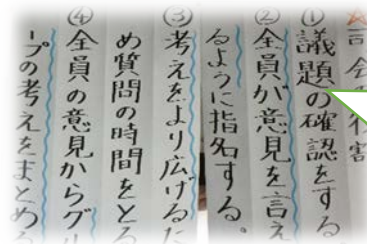 司会の役割
①議題の確認をする
②全員が意見を言え
るように指名する。
③考えをより広げるた
め質問の時間をとる
④全員の意見からグル
ープの考えをまとめる